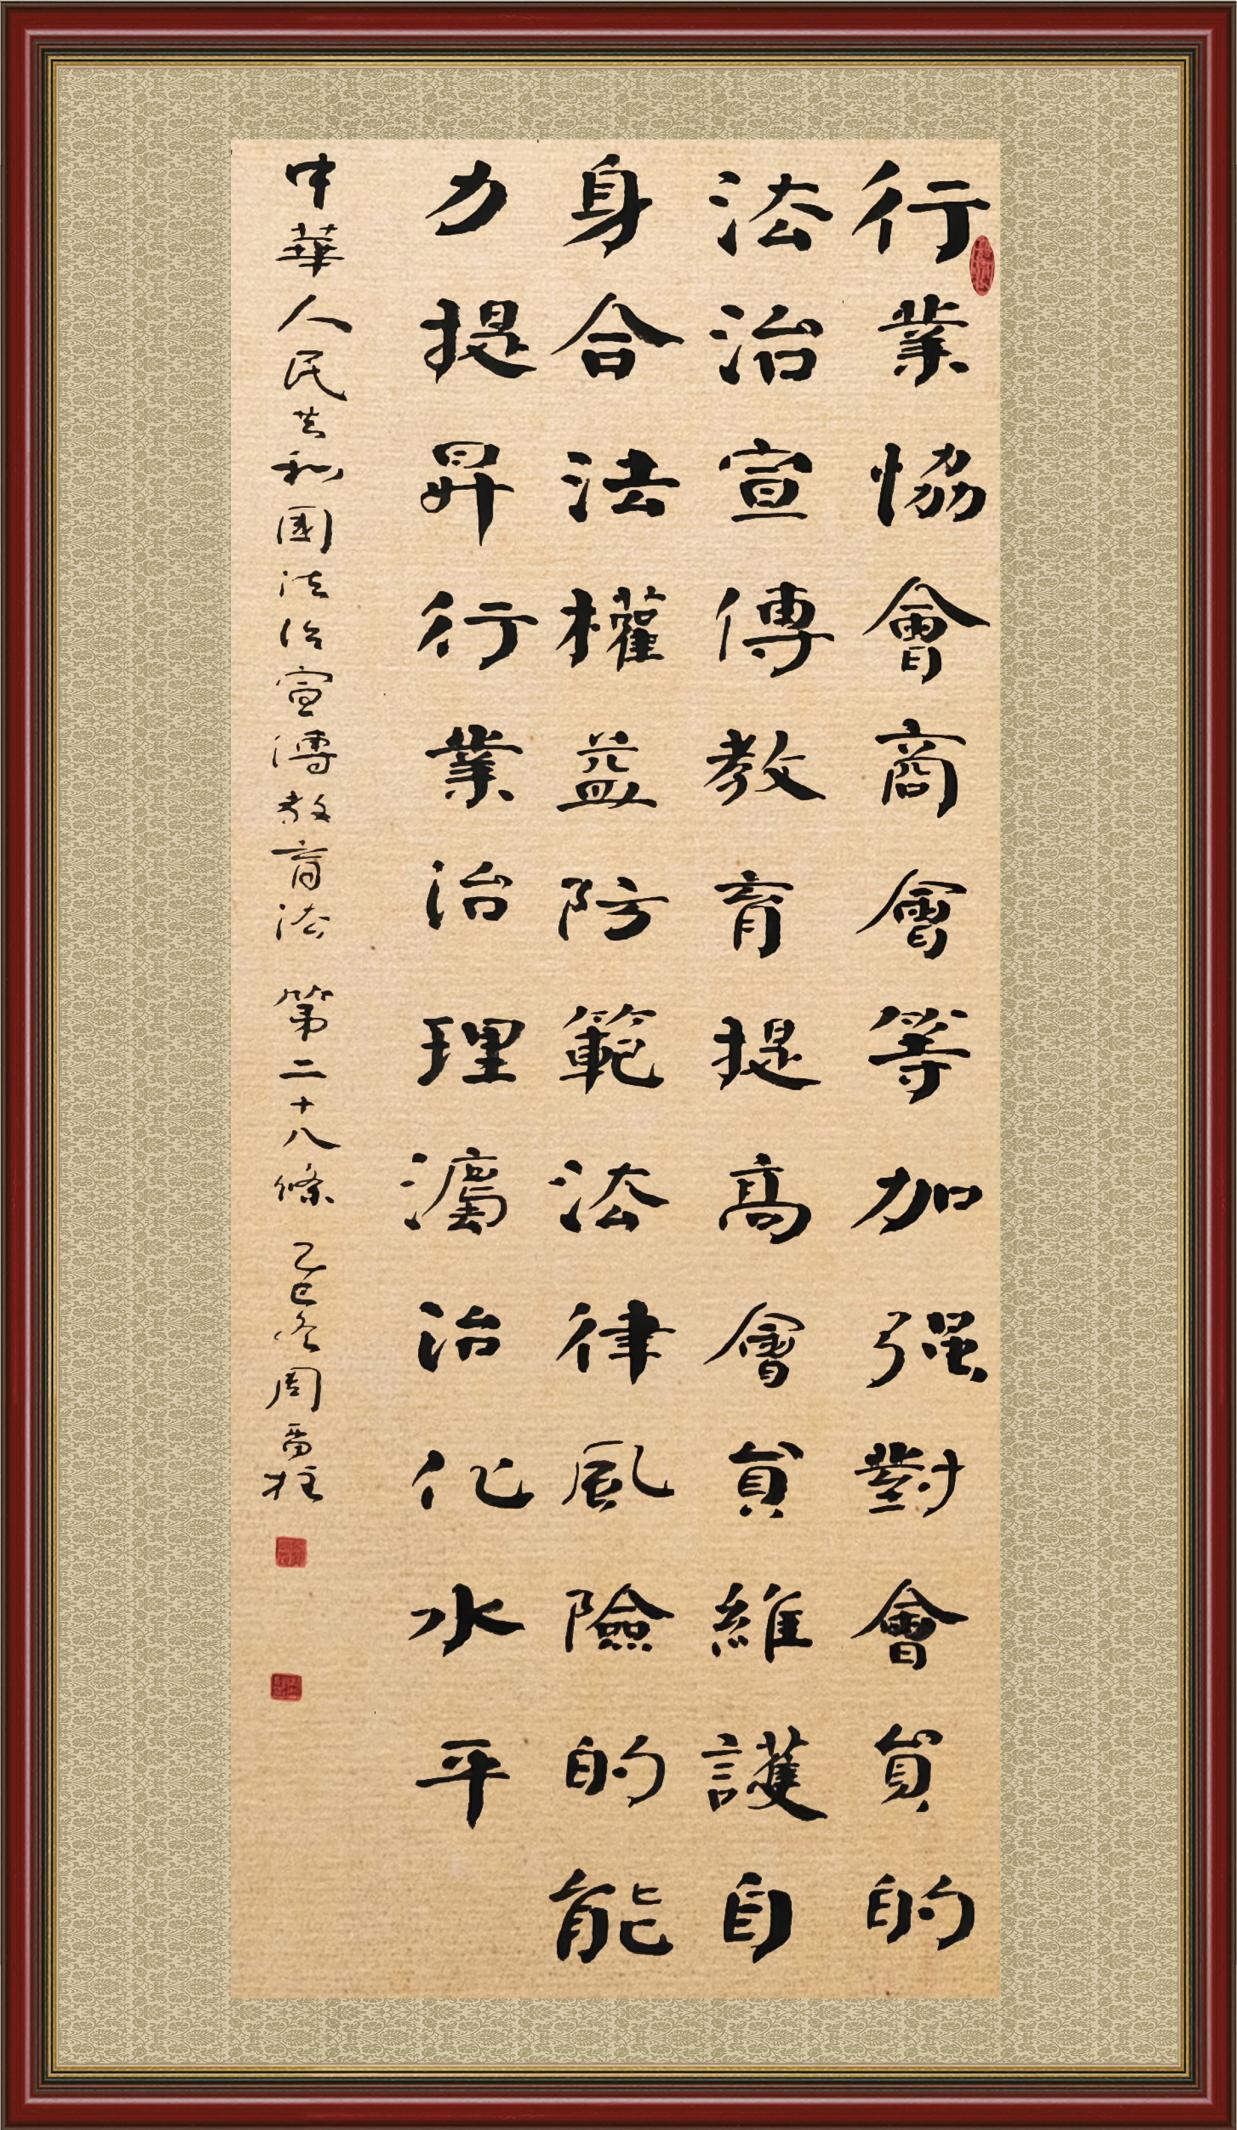 行業恊會商會等加强對會員的
法治宣傳教育提高會員維護自
身合法權益防範法律風險的能
力提昇行業治理灋治化水平
中華人民共和國法治宣傳教育法 第二十八條 乙巳冬周